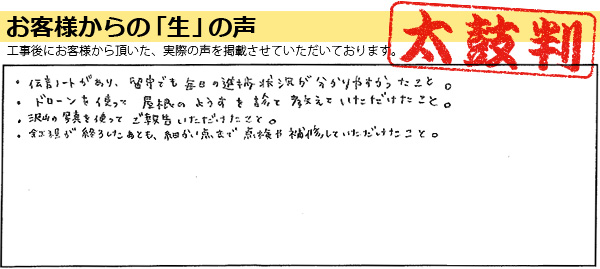 お客様からの「生」の声
太鼓判
工事後にお客様から頂いた、実際の声を掲載させていただいております。
・伝言ノートがあり、留守でも毎日の進捗状況が分かりやすかったこと。
・ドローンを使って屋根のようすを診て教えていただけたこと。
・沢山の写真を使ってご報告いただけたこと。
・全工程が終了したあとも、細かい点まで点検や補修していただけたこと。